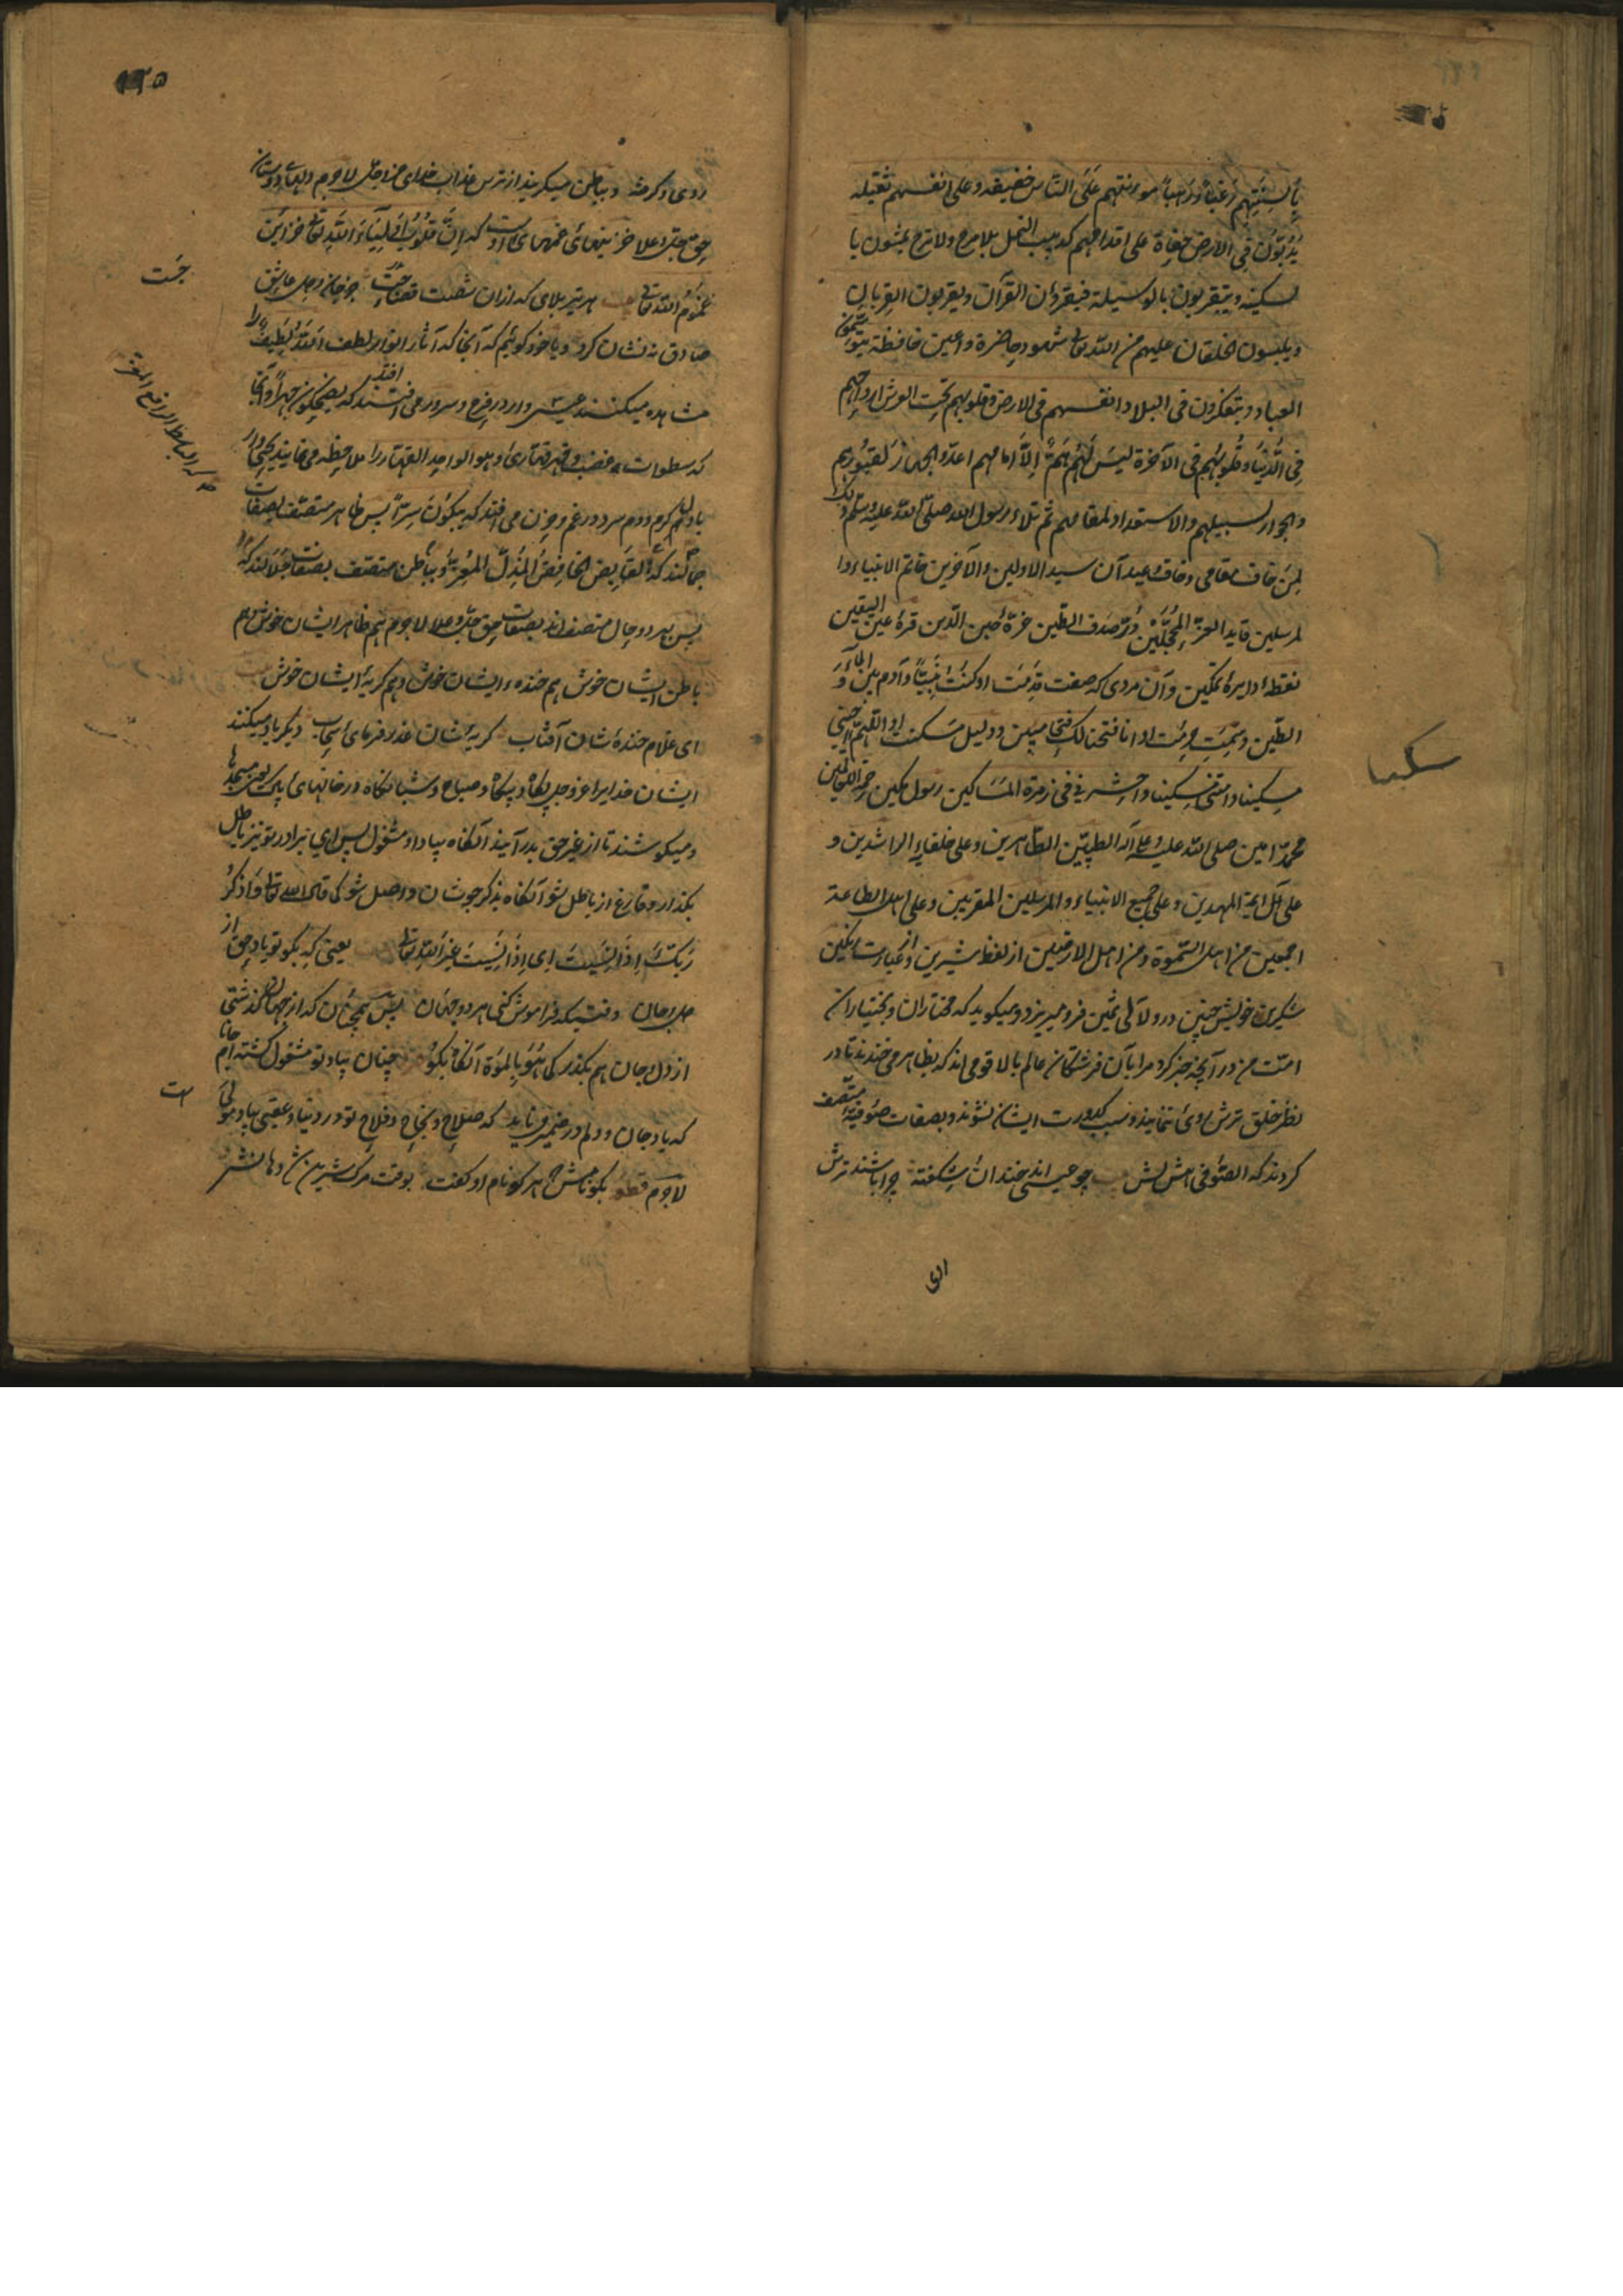 بألسنتهم رغبا و رهبا مونتهم على الناس خفيفه و على انفسهم ثقيله
يدبّون فى الارض حفاة على اقدامهم كدبيب النمل بلا مرح ولا ترح يمشون با
لسكينه و يتقربون بالوسيلة فيقرؤن القرآن و يقربون القربان
و يلبسون الخلقان عليهم من الله تعالى شهود حاضرة و اعين حافظة يتوسّمون
العباد و يتفكرون فى البلاد انفسهم فى الارض و قلوبهم تحت العرش ارواحهم
فى الدّنيا و قلوبهم فى الآخرة ليس لهم همّ الّا امامهم اعدّوا الجهاز لقبورهم
والجواز لسبيلهم والاستعداد لمقامهم ثم تلاء رسول الله صلى الله عليه وسلم ذلك
لمن خاف مقامى و خاف وعيد آن سيد الاولين والآخرين خاتم الانبياء وا
لمرسلين قايد الغرّ المحجّلين درّ صدف الطين غرّهٔ جبين الدّين قرهٔ عين اليقين
نقطهٔ دايرهٔ تمكين و آن مردى كه صفت قدمت او كنت نبيّا و آدم بين الماء و
الطين و سمت حرمت او انا فتحنا لك فتحا مبين و دليل مسكنت او اللهمّ احينى
مسكينا و امتنى مسكينا و احشرنى فى زمرة المساكين رسول مكين رحمة للعالمين
محمّد امين صلى الله عليه و على آله الطيبين الطاهرين و على خلفايه الراشدين و
على آل ايمة المهديين و على جميع الانبياء والمرسلين المقربين و على اهل الطاعة
اجمعين من اهل السموة و من اهل الارضين از لفظ شيرين و از عبارت رنگين
شكرين خويش چنين درو لآلى ثمين فرو ميريزد و ميگويد كه مختاران و بختياران
امّت من در آنچه خبر كرد مرا بآن فرشتگان عالم بالا قومى اند كه بظاهر مى خندند تا در
نظر خلق ترش روئ ننمايند و سبب كدورت ايشان نشوند و بصفات صوفيّه متّصف
گردند كه الصّوفى هش بش چو عيسى اند خندان شكفته چرا باشند ترش
الو
سكينا
١٣٥
روى و گرفته و بباطن ميگريند از ترس عذاب خداى عز و جل لاجرم دلهاى دوستان
حق جل و علا خزينهاى غمهاى اوست كه انّ قلوب اولياء الله تعالى خزاين
غموم الله تعالى هر تير بلاى كه ازان شصت قضا جست جز جان و دل عاشق
صادق نه نشان كرد و يا خود گوئيم كه آنجا كه آثار انوار لطف الله لطيف را
مشاهده ميكنند عيسى وار در فرح و سرور مى افتند كه يضحكون جهرا و آنجا
كه سطوات غضب و قهر قهّارئ وهو الواحد القهّار را ملاحظه مى نمايند يحيى وار
با دل گرم و دم سرد در غم و حزن مى افتند كه يبكون سرّا پس ظاهر متصّف بصفات
جمالند كه القابض الخافض المذلّ المعزّ و بباطن متصّف بصفات جلالند كه
پس بهر دو حال متصف اند بصفات حق جل و علا لاجرم هم ظاهر ايشان خوش هم
باطن ايشان خوش هم خندهٔ ايشان خوش و هم گريهٔ ايشان خوش
اى غلام خندهٔ شان آفتاب گريهٔ شان عذر فرماى سحاب ديگر ياد ميكنند
ايشان خدايرا عز و جل پگاه و بيگاه و صباح و شبانگاه در خانهاى پاك يعنى مسجدها
و ميكوشند تا از غير حق بدر آيند آنگاه بياد او مشغول پس اى برادر تو نيز باطل
بگذار و فارغ از باطل شو آنگاه بذكر جوشان واصل شو كما قال الله تعالى واذكر
ربّك اذا نسيت اى اذا نسيت غير الله تعالى يعنى كه بگو تو ياد حق از
دل و جان وقتيكه فراموش كنى هر دو جهان پس همچنان كه از جهان گذشتى
از دل و جان هم بگذر كما هو بالمؤة آنگاه بگو چنان بياد تو مشغول گشته ام جانا
كه ياد جان و دلم در ضمير مى نايد كه صلاح و نجاح و فلاح تو در دنيا و عقبى بياد مولى
لاجرم قطعه بگو نامش هر كو نام او گفت بوقت مرگ شيرين شد دهانش
جست
الباسط الرافع المعز
ست